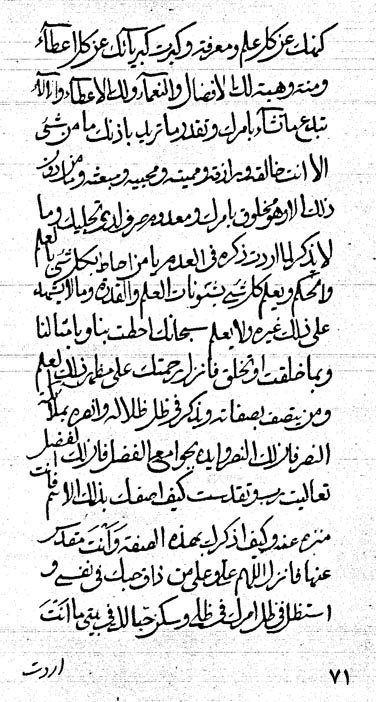 كينونتك عن كل علم ومعرفة وكبرت كبريائك عن كل اعطاء
ومنة وهبة لك الافضال والنعماء ولك الاعطاء والآلاء
تبدع ما تشاء بامرك وتقدر ما تريد باذنك ما من شئ
الا انت خالقه ورازقه ومميته ومحييه ومبعثه وما من دون
ذلك الا وهو مخلوق بامرك ومعدوم صرف لدى تجليك وما
لا يذكر لما اردت ذكره فى العدم يا من احاط بكل شئ بالعلم
والحكم ويعلم كل شئ بشئونات العلم والقدرة وما لا يشهد
على ذلك غيره ولا يعلم سبحانك احطت بنا وبامثالنا
وبما خلقت او تخلق فانزل رحمتك على مظهر ذلك العلم
ومن يتصف بصفاته ويذكر فى ظل ظلاله وانصره بملائكة
النصر فانزلك النصر وايده بجوامع الفضل فانزلك الفضل
تعاليت رب وتقدست كيف اصفك بذلك الاسم فانت
منزه عنه وكيف اذكرك بهذه الصفة وانت مقدس
عنها فانزل اللهم على وعلى من ذاق حبك فى نفسى و
استظل فى ظل امرك فى ظلى وسكن حبا لك فى بيتى ما انت
٧١
اردت